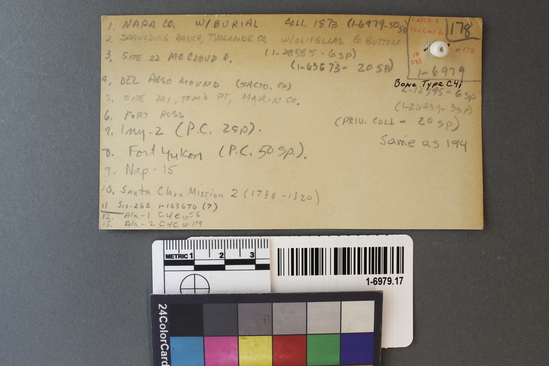 1. NAPA CO. W/BURIAL COLL. 1873 (1-6979-50 sp)
2. SPAULDING RANCH, TUOLUMNE CO. W/OLIVELLAS & BUTTON
3. SITE 22 McCLOUD R. (1-28385-6 sp)
(1-63673- 20 sp)
4. DEL PASO MOUND (SACTO. CO)
5. SITE 201, TOM'S PT, MARIN CO.
6. FORT ROSS
7. Iny-2 (P.C. 2sp).
8. Fort Yukon (P.C. 50 sp.)
9. Nap-15
10. Santa Clara Mission 2 (1780-1820)
11. Sis-262 1-163670 (7)
12. Ala-1
13. Ala-2
178
1-6979
Bone Type C41
(PRIV. COLL - 20 sp)
Same as 194
METRIC 1 2 3
1-6979.17
24ColorCard